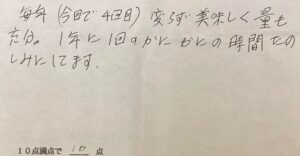 毎年(今回で4回目)変らず美味しく量も
充分。1年に1回のかにかにの時間たの
しみにしてます。
10点満点で 10 点